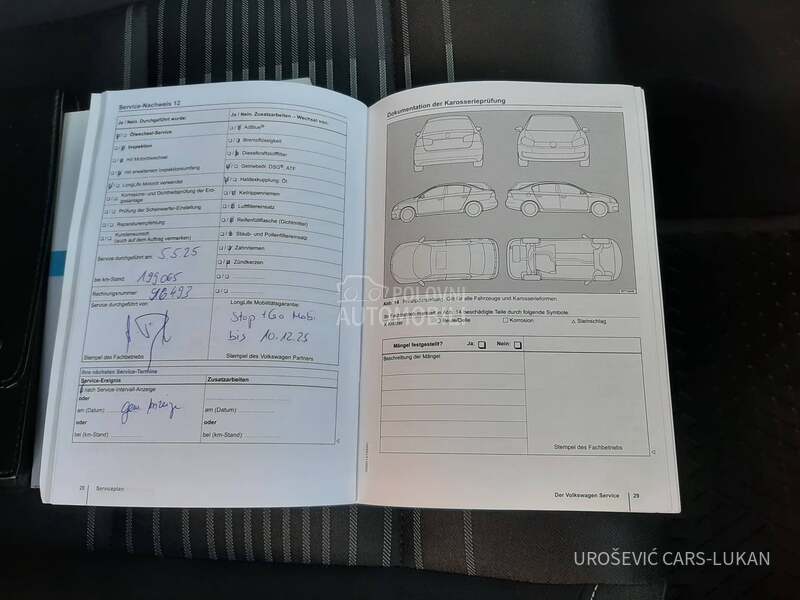 Service-Nachweis 12
Ja / Nein. Durchgeführt wurde:
Ölwechsel-Service
Inspektion
mit Motorölwechsel
mit erweitertem Inspektionsumfang
LongLife Motoröl verwendet
Korrosions- und Dichtheitsprüfung der Erdgasanlage
Prüfung der Scheinwerfer-Einstellung
Reparaturempfehlung
Kundenwunsch
(auch auf dem Auftrag vermerken)
Service durchgeführt am: 5.5.25
bei km-Stand: 199065
Rechnungsnummer: 96493
Service durchgeführt von:
Stempel des Fachbetriebs
Ja / Nein. Zusatzarbeiten – Wechsel von:
AdBlue®
Bremsflüssigkeit
Dieselkraftstofffilter
Getriebeöl: DSG®, ATF
Haldexkupplung: Öl
Keilrippenriemen
Luftfiltereinsatz
Reifenfüllflasche (Dichtmittel)
Staub- und Pollenfiltereinsatz
Zahnriemen
Zündkerzen
LongLife Mobilitätsgarantie:
Stop + Go Mobi
bis 10.12.25
Stempel des Volkswagen Partners
Ihre nächsten Service-Termine
Service-Ereignis
Zusatzarbeiten
nach Service-Intervall-Anzeige
oder
am (Datum)
am (Datum)
oder
oder
bei (km-Stand)
bei (km-Stand)
28
Serviceplan
Dokumentation der Karosserieprüfung
Abb. 14
x Kratzer
Beule/Delle
Korrosion
Steinschlag
Mängel festgestellt?
Ja:
Nein:
Beschreibung der Mängel
Stempel des Fachbetriebs
Der Volkswagen Service
29
POLOVNI
AUTOMOBILI
UROŠEVIĆ CARS-LUKAN